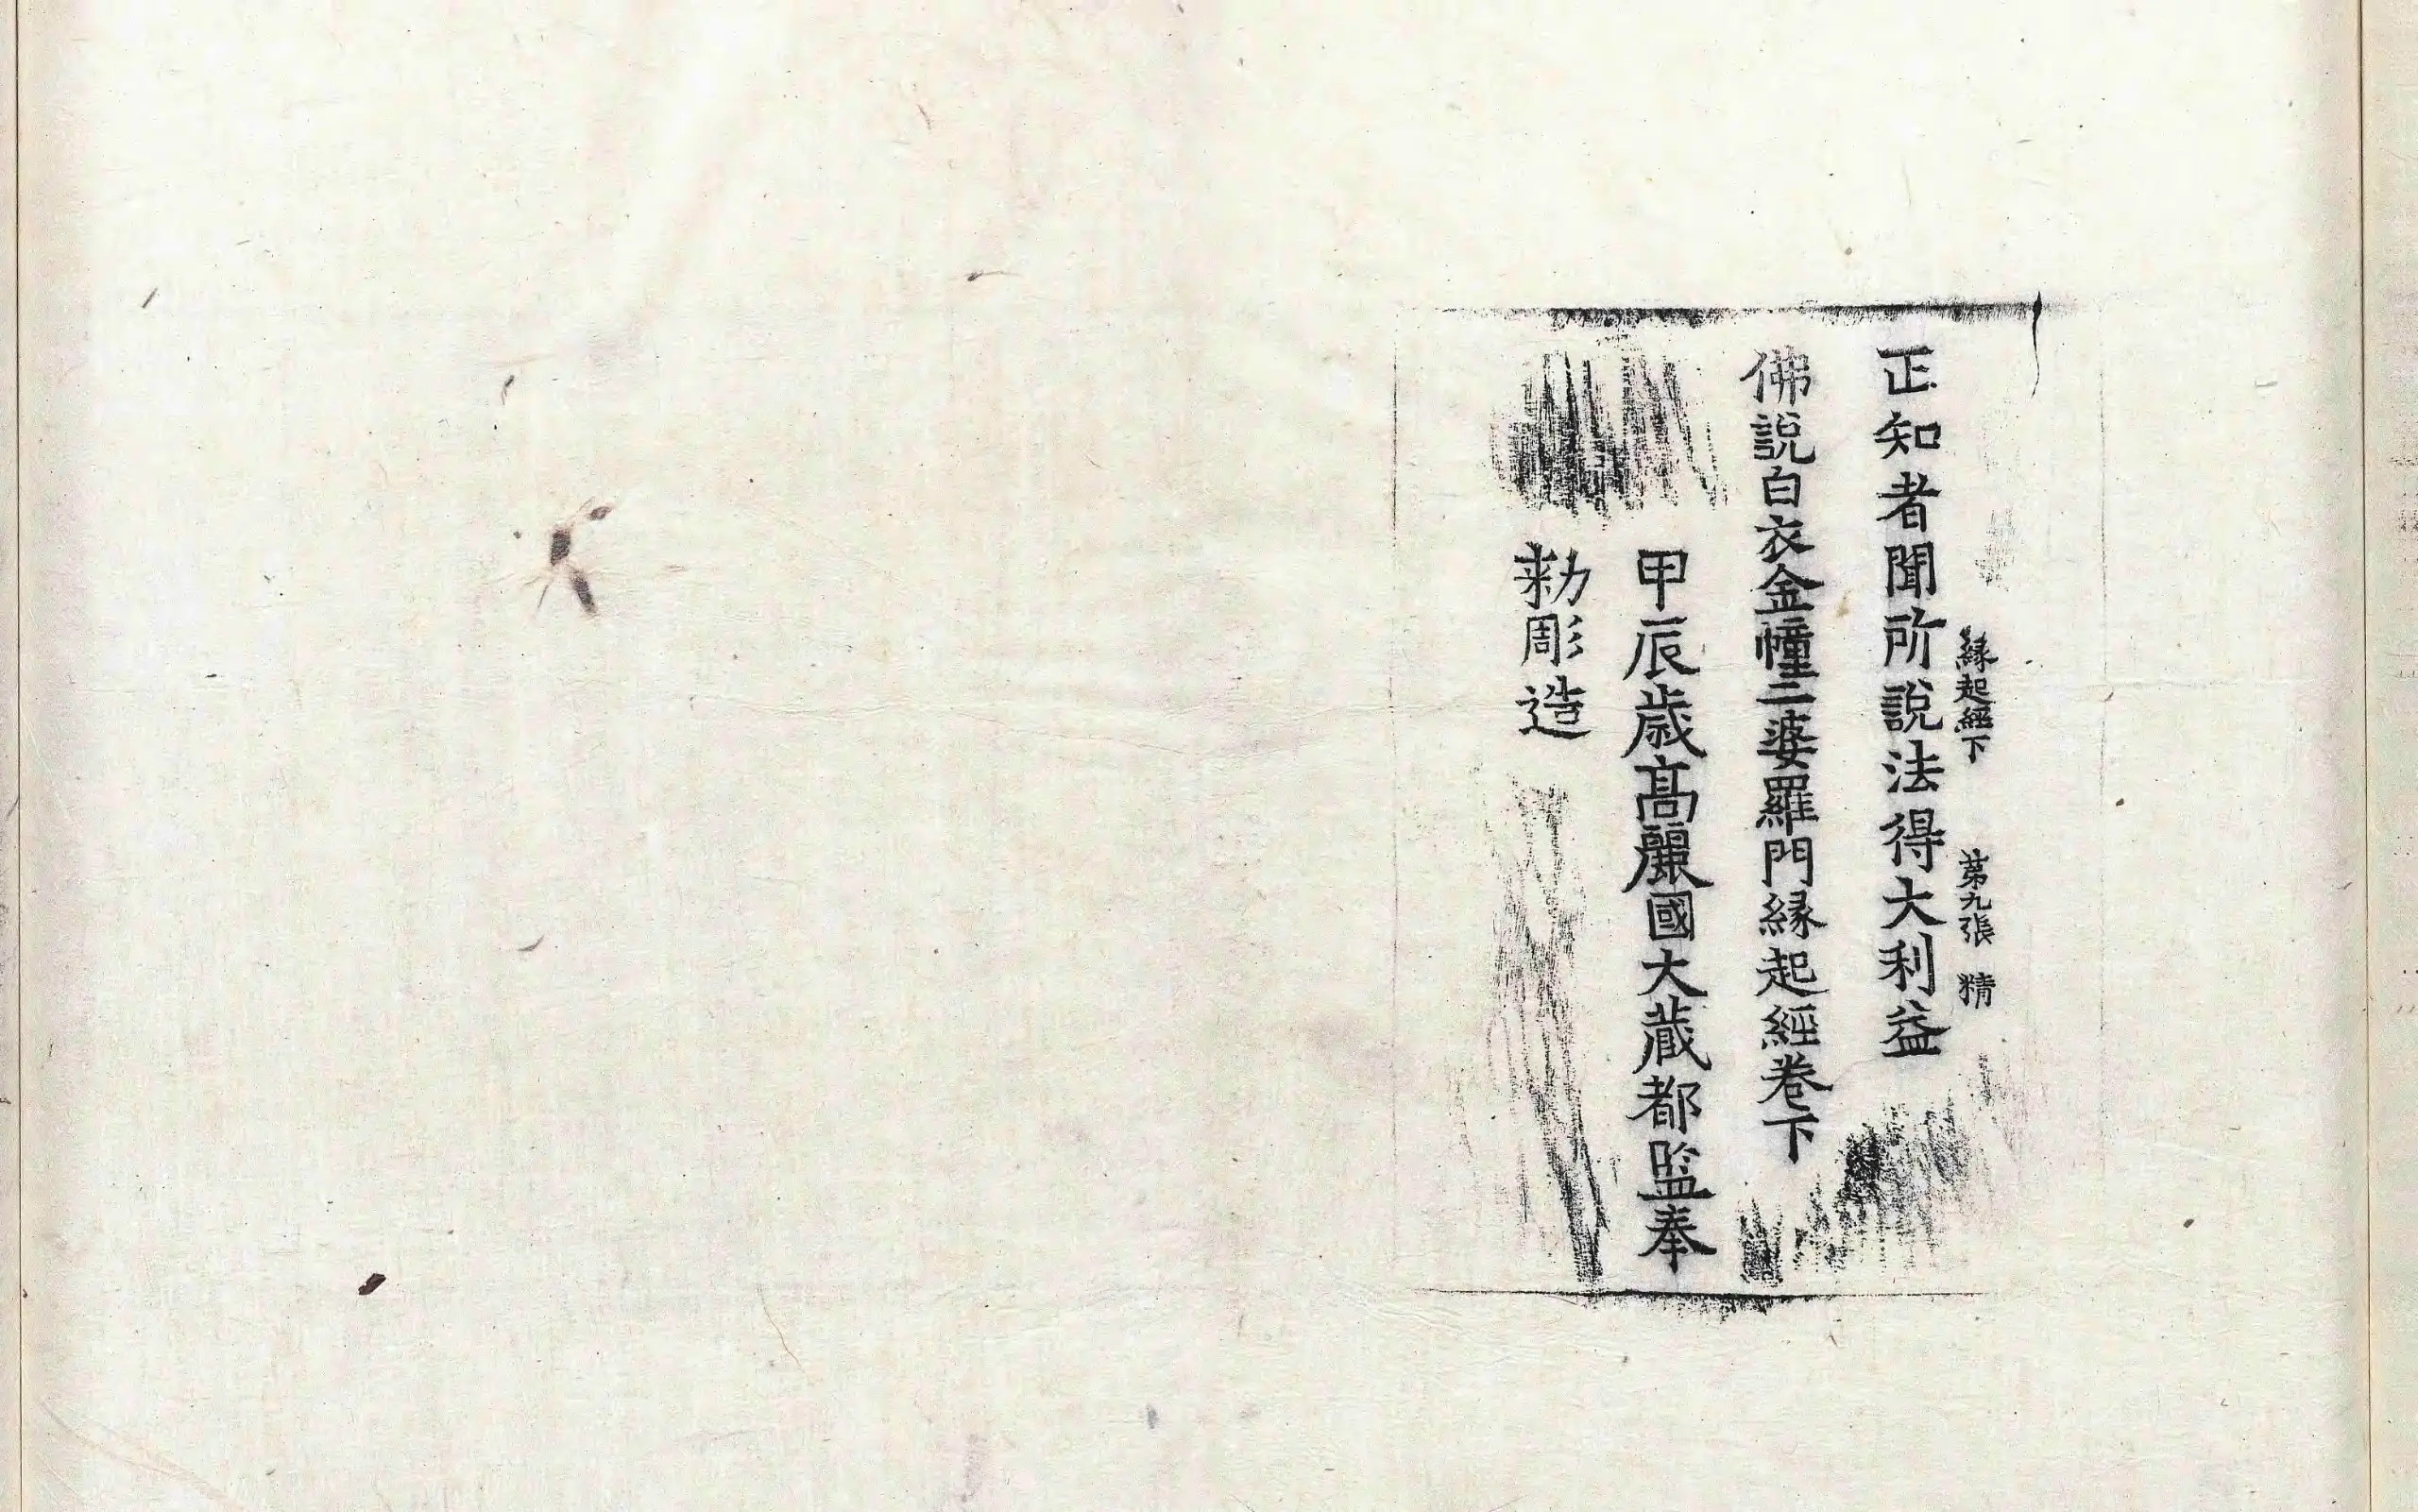 緣起經下 第九張 精
正知者聞所說法得大利益
佛說白衣金幢二婆羅門緣起經卷下
甲辰歳高麗國大藏都監奉
勑彫造